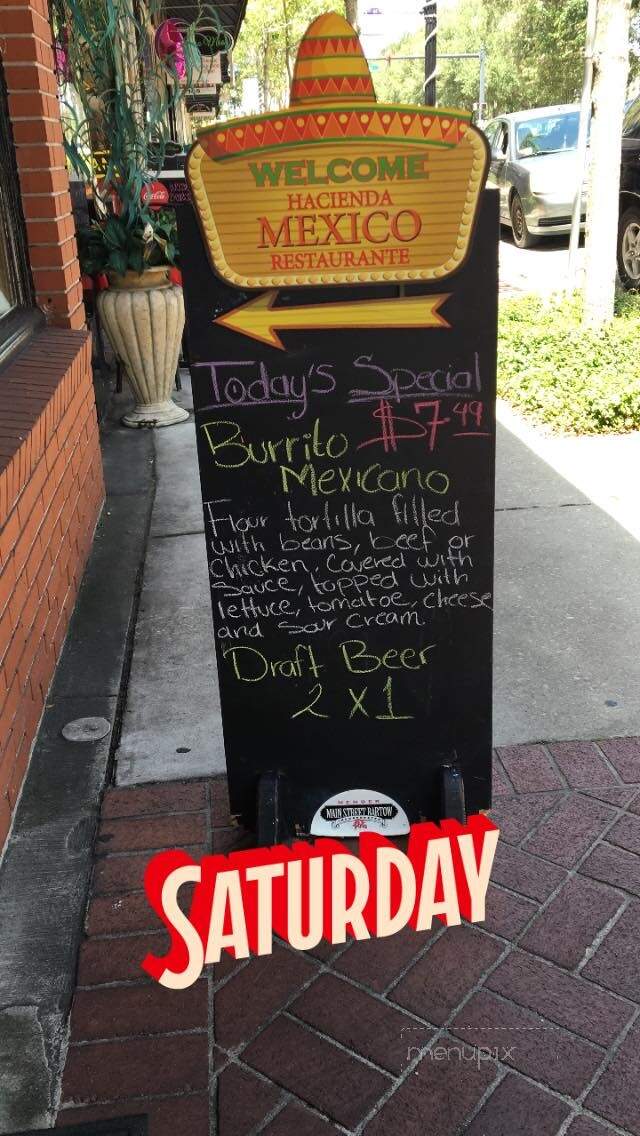 WELCOME
HACIENDA
MEXICO
RESTAURANTE
Coca-Cola
Today's Special
$7.49
Burrito
Mexicano
Flour tortilla filled
with beans, beef or
Chicken, Covered with
Sauce, topped with
lettuce, tomatoe, cheese
and Sour Cream
Draft Beer
2 X 1
MEMBER
MAIN STREET BARTOW
SATURDAY
menupix